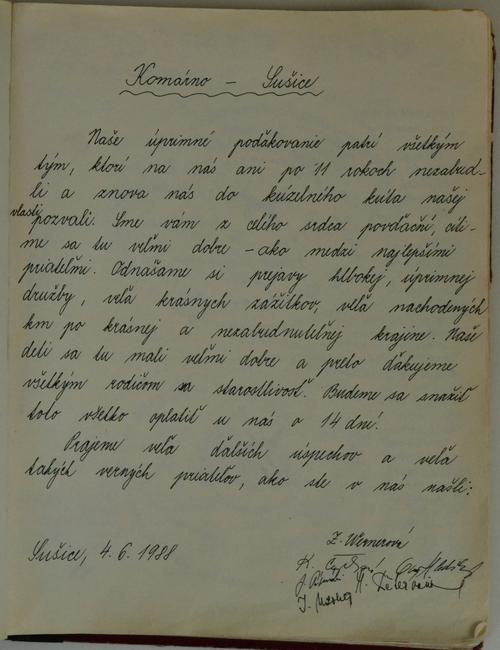 Komárno – Sušice
Naše úprimné poďakovanie patrí všetkým
tým, ktorí na nás ani po 11 rokoch nezabud-
li a znova nás do kúzelného kúta našej
vlasti
pozvali. Sme vám z celého srdca povďační, cíti-
me sa tu veľmi dobre – ako medzi najlepšími
priateľmi. Odnášame si prejavy hlbokej, úprimnej
družby, veľa krásnych zážitkov, veľa nachodených
km po krásnej a nezabudnuteľnej krajine. Naše
deti sa tu mali veľmi dobre a preto ďakujeme
všetkým rodičom za starostlivosť. Budeme sa snažiť
toto všetko oplatiť u nás o 14 dní.
Prajeme veľa ďalších úspechov a veľa
takých verných priateľov, ako ste v nás našli:
Sušice, 4. 6. 1988
Z. Wernerová